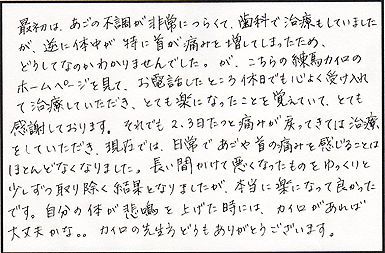 最初は、あごの不調が非常につらくて、歯科で治療もしていました
が、逆に体中が特に首が痛みを増してしまったため、
どうしてなのかわかりませんでした。が、こちらの練馬カイロの
ホームページを見て、お電話したところ休日でも心よく受け入れ
て治療していただき、とても楽になったことを覚えていて、とても
感謝しております。それでも2.3日たつと痛みが戻ってきては治療
をしていただき、現在では、日常であごや首の痛みを感じることは
ほとんどなくなりました。長い間かけて悪くなったものをゆっくりと
少しずつ取り除く結果となりましたが、本当に楽になって良かった
です。自分の体が悲鳴を上げた時には、カイロがあれば
大丈夫かな。。カイロの先生方どうもありがとうございます。